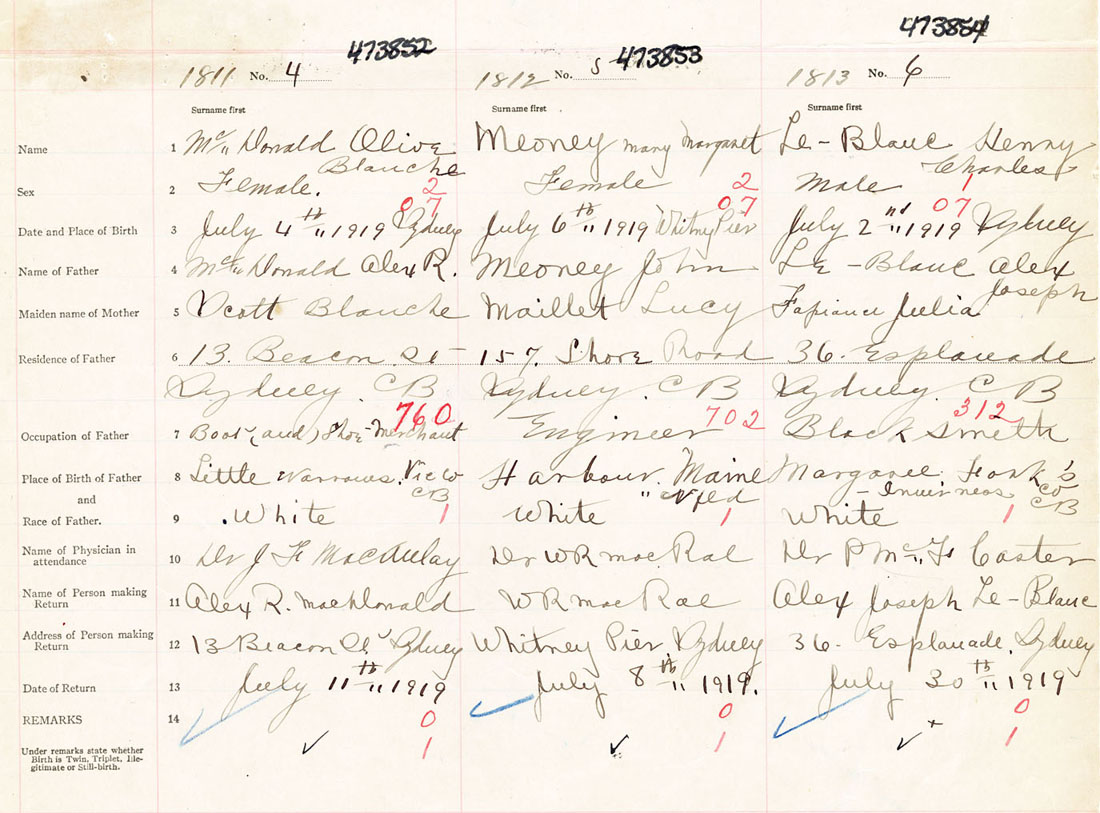 473852 473853 473854
1811 No. 4 1812 No. 5 1813 No. 6
Surname first Surname first Surname first
Name 1 Mc" Donald Olive Meoney Mary Margaret Le-Blanc Henry
Blanche Charles
Sex 2 Female. 2 Female 2 Male 1
07 07 07
Date and Place of Birth 3 July 4th" 1919 Sydney July 6th" 1919 Whitney Pier July 2nd" 1919 Sydney
Name of Father 4 Mc" Donald Alex R. Meoney John Le-Blanc Alex
Joseph
Maiden name of Mother 5 Scott Blanche Maillet Lucy Julia
Residence of Father 6 13. Beacon St 157. Shore Road 36. Esplanade
Sydney. CB Sydney. CB Sydney. CB
760 702 312
Occupation of Father 7 Boot (and) Shoe Merchant Engineer Black Smith
Place of Birth of Father 8 Little Narrows. Vic Co Harbour. Maine Margaree. Fork's
and CB " Nfld - Inverness Co CB
Race of Father. 9 .White 1 White 1 White 1
Name of Physician in
attendance 10 Dr J F MacAulay Dr W R MacRae Dr P Mc" F
Name of Person making
Return 11 Alex R. MacDonald W R MacRae Alex Joseph Le-Blanc
Address of Person making
Return 12 13 Beacon St Sydney Whitney Pier, Sydney 36. Esplanade, Sydney
Date of Return 13 July 11th" 1919 July 8th" 1919. July 30th" 1919
REMARKS 14 0 0 0
Under remarks state whether
Birth is Twin, Triplet, Ille-
gitimate or Still-birth. ✓ 1 ✓ 1 ✓ + 1